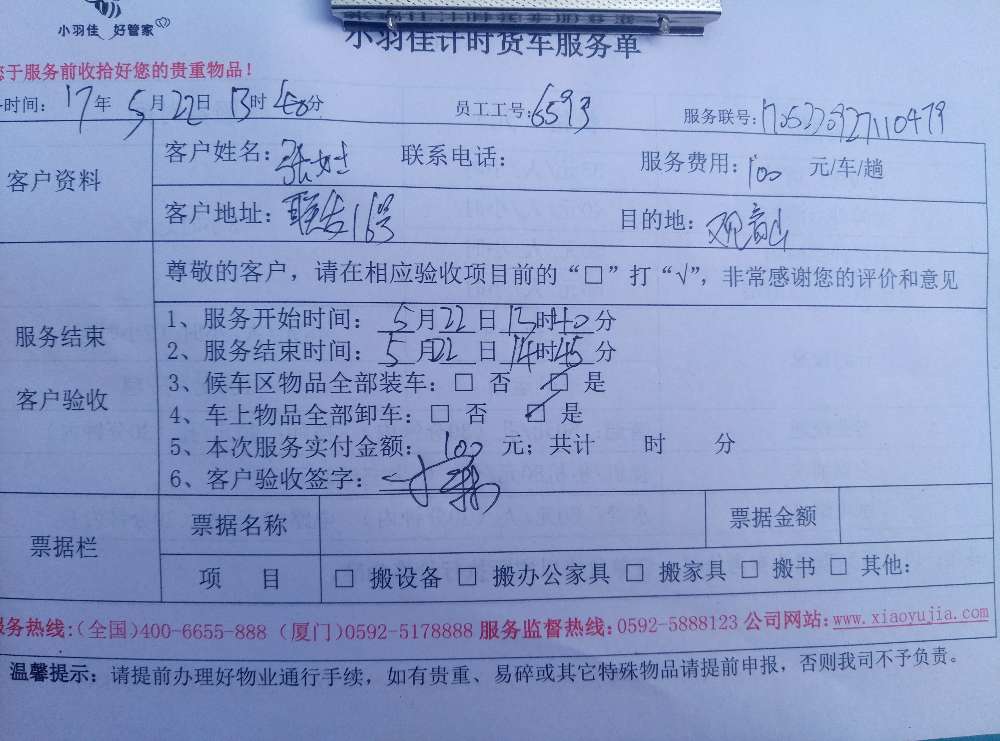 小羽佳 好管家
小羽佳计时货车服务单
您于服务前收拾好您的贵重物品！
时间：17年5月22日13时40分 员工工号：6593 服务联号：
客户资料 客户姓名：张 联系电话： 服务费用：100 元/车/趟
客户地址：联发16号 目的地：观音山
尊敬的客户，请在相应验收项目前的“□”打“√”，非常感谢您的评价和意见
服务结束
客户验收
1、服务开始时间：5月22日13时40分
2、服务结束时间：5月22日14时45分
3、候车区物品全部装车：□ 否 ☑ 是
4、车上物品全部卸车：□ 否 ☑ 是
5、本次服务实付金额：100 元；共计 时 分
6、客户验收签字：
票据栏 票据名称 票据金额
项 目 □ 搬设备 □ 搬办公家具 □ 搬家具 □ 搬书 □ 其他：
服务热线：(全国)400-6655-888 (厦门)0592-5178888 服务监督热线：0592-5888123 公司网站：www.xiaoyujia.com
温馨提示：请提前办理好物业通行手续，如有贵重、易碎或其它特殊物品请提前申报，否则我司不予负责。